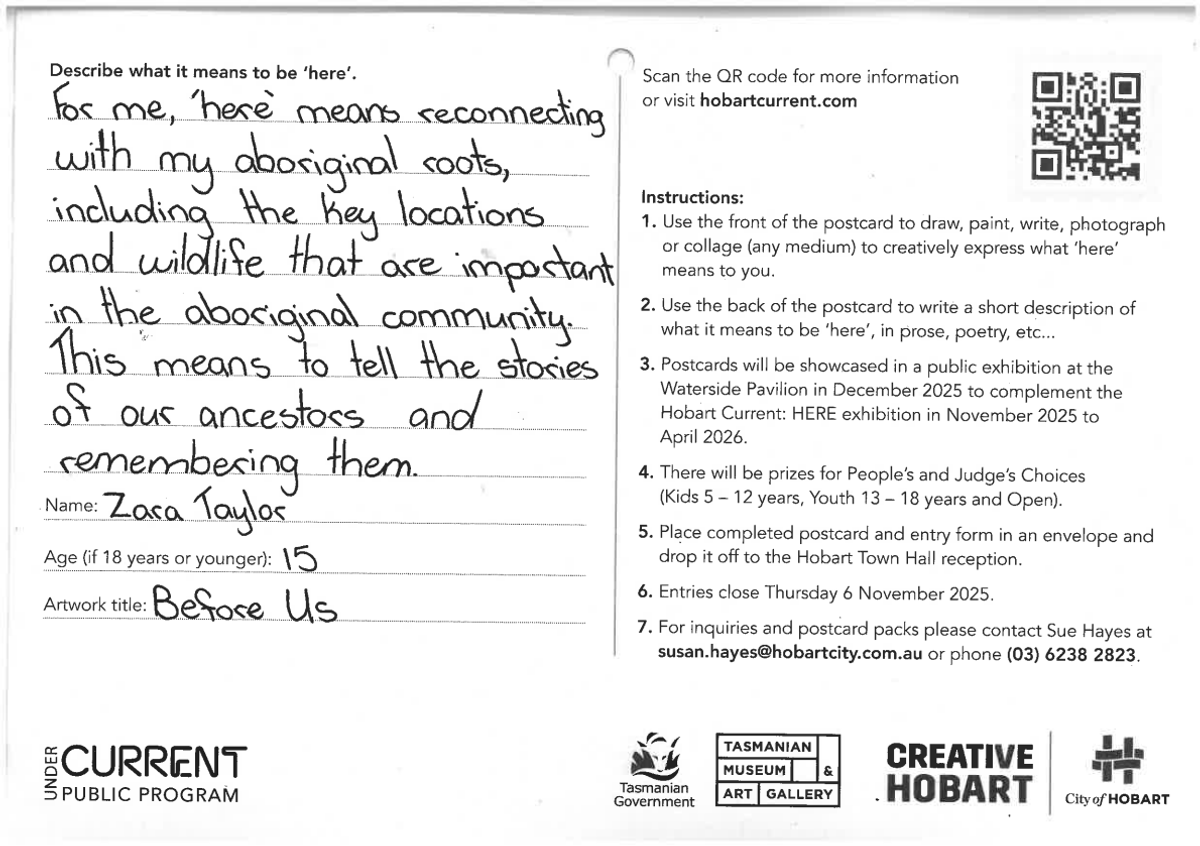 Describe what it means to be ‘here’.
For me, 'here' means reconnecting
with my aboriginal roots,
including the key locations
and wildlife that are important
in the aboriginal community.
This means to tell the stories
of our ancestors and
remembering them.
Name: Zara Taylor
Age (if 18 years or younger): 15
Artwork title: Before Us
UNDER CURRENT
PUBLIC PROGRAM
Scan the QR code for more information
or visit hobartcurrent.com
Instructions:
1. Use the front of the postcard to draw, paint, write, photograph
or collage (any medium) to creatively express what ‘here’
means to you.
2. Use the back of the postcard to write a short description of
what it means to be ‘here’, in prose, poetry, etc...
3. Postcards will be showcased in a public exhibition at the
Waterside Pavilion in December 2025 to complement the
Hobart Current: HERE exhibition in November 2025 to
April 2026.
4. There will be prizes for People’s and Judge’s Choices
(Kids 5 – 12 years, Youth 13 – 18 years and Open).
5. Place completed postcard and entry form in an envelope and
drop it off to the Hobart Town Hall reception.
6. Entries close Thursday 6 November 2025.
7. For inquiries and postcard packs please contact Sue Hayes at
susan.hayes@hobartcity.com.au or phone (03) 6238 2823.
Tasmanian
Government
TASMANIAN
MUSEUM &
ART GALLERY
CREATIVE
HOBART
City of HOBART